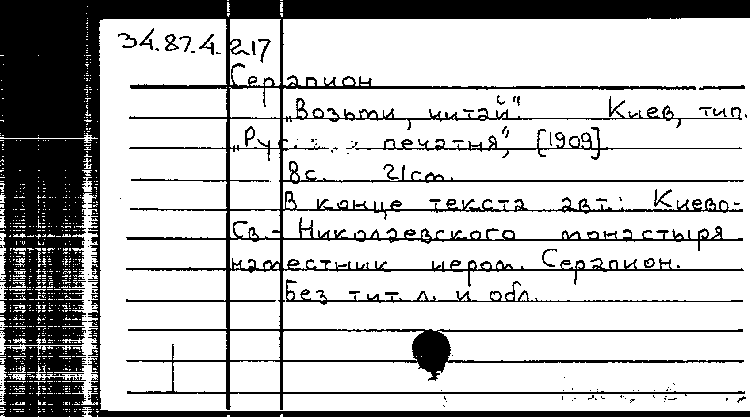 34.87.4.217
Серапион
„Возьми, читай". Киев, тип.
„Рус. печатня", [1909].
8с. 21см.
В конце текста авт.: Киево-
Св.-Николаевского монастыря
наместник иером. Серапион.
Без тит. л. и обл.